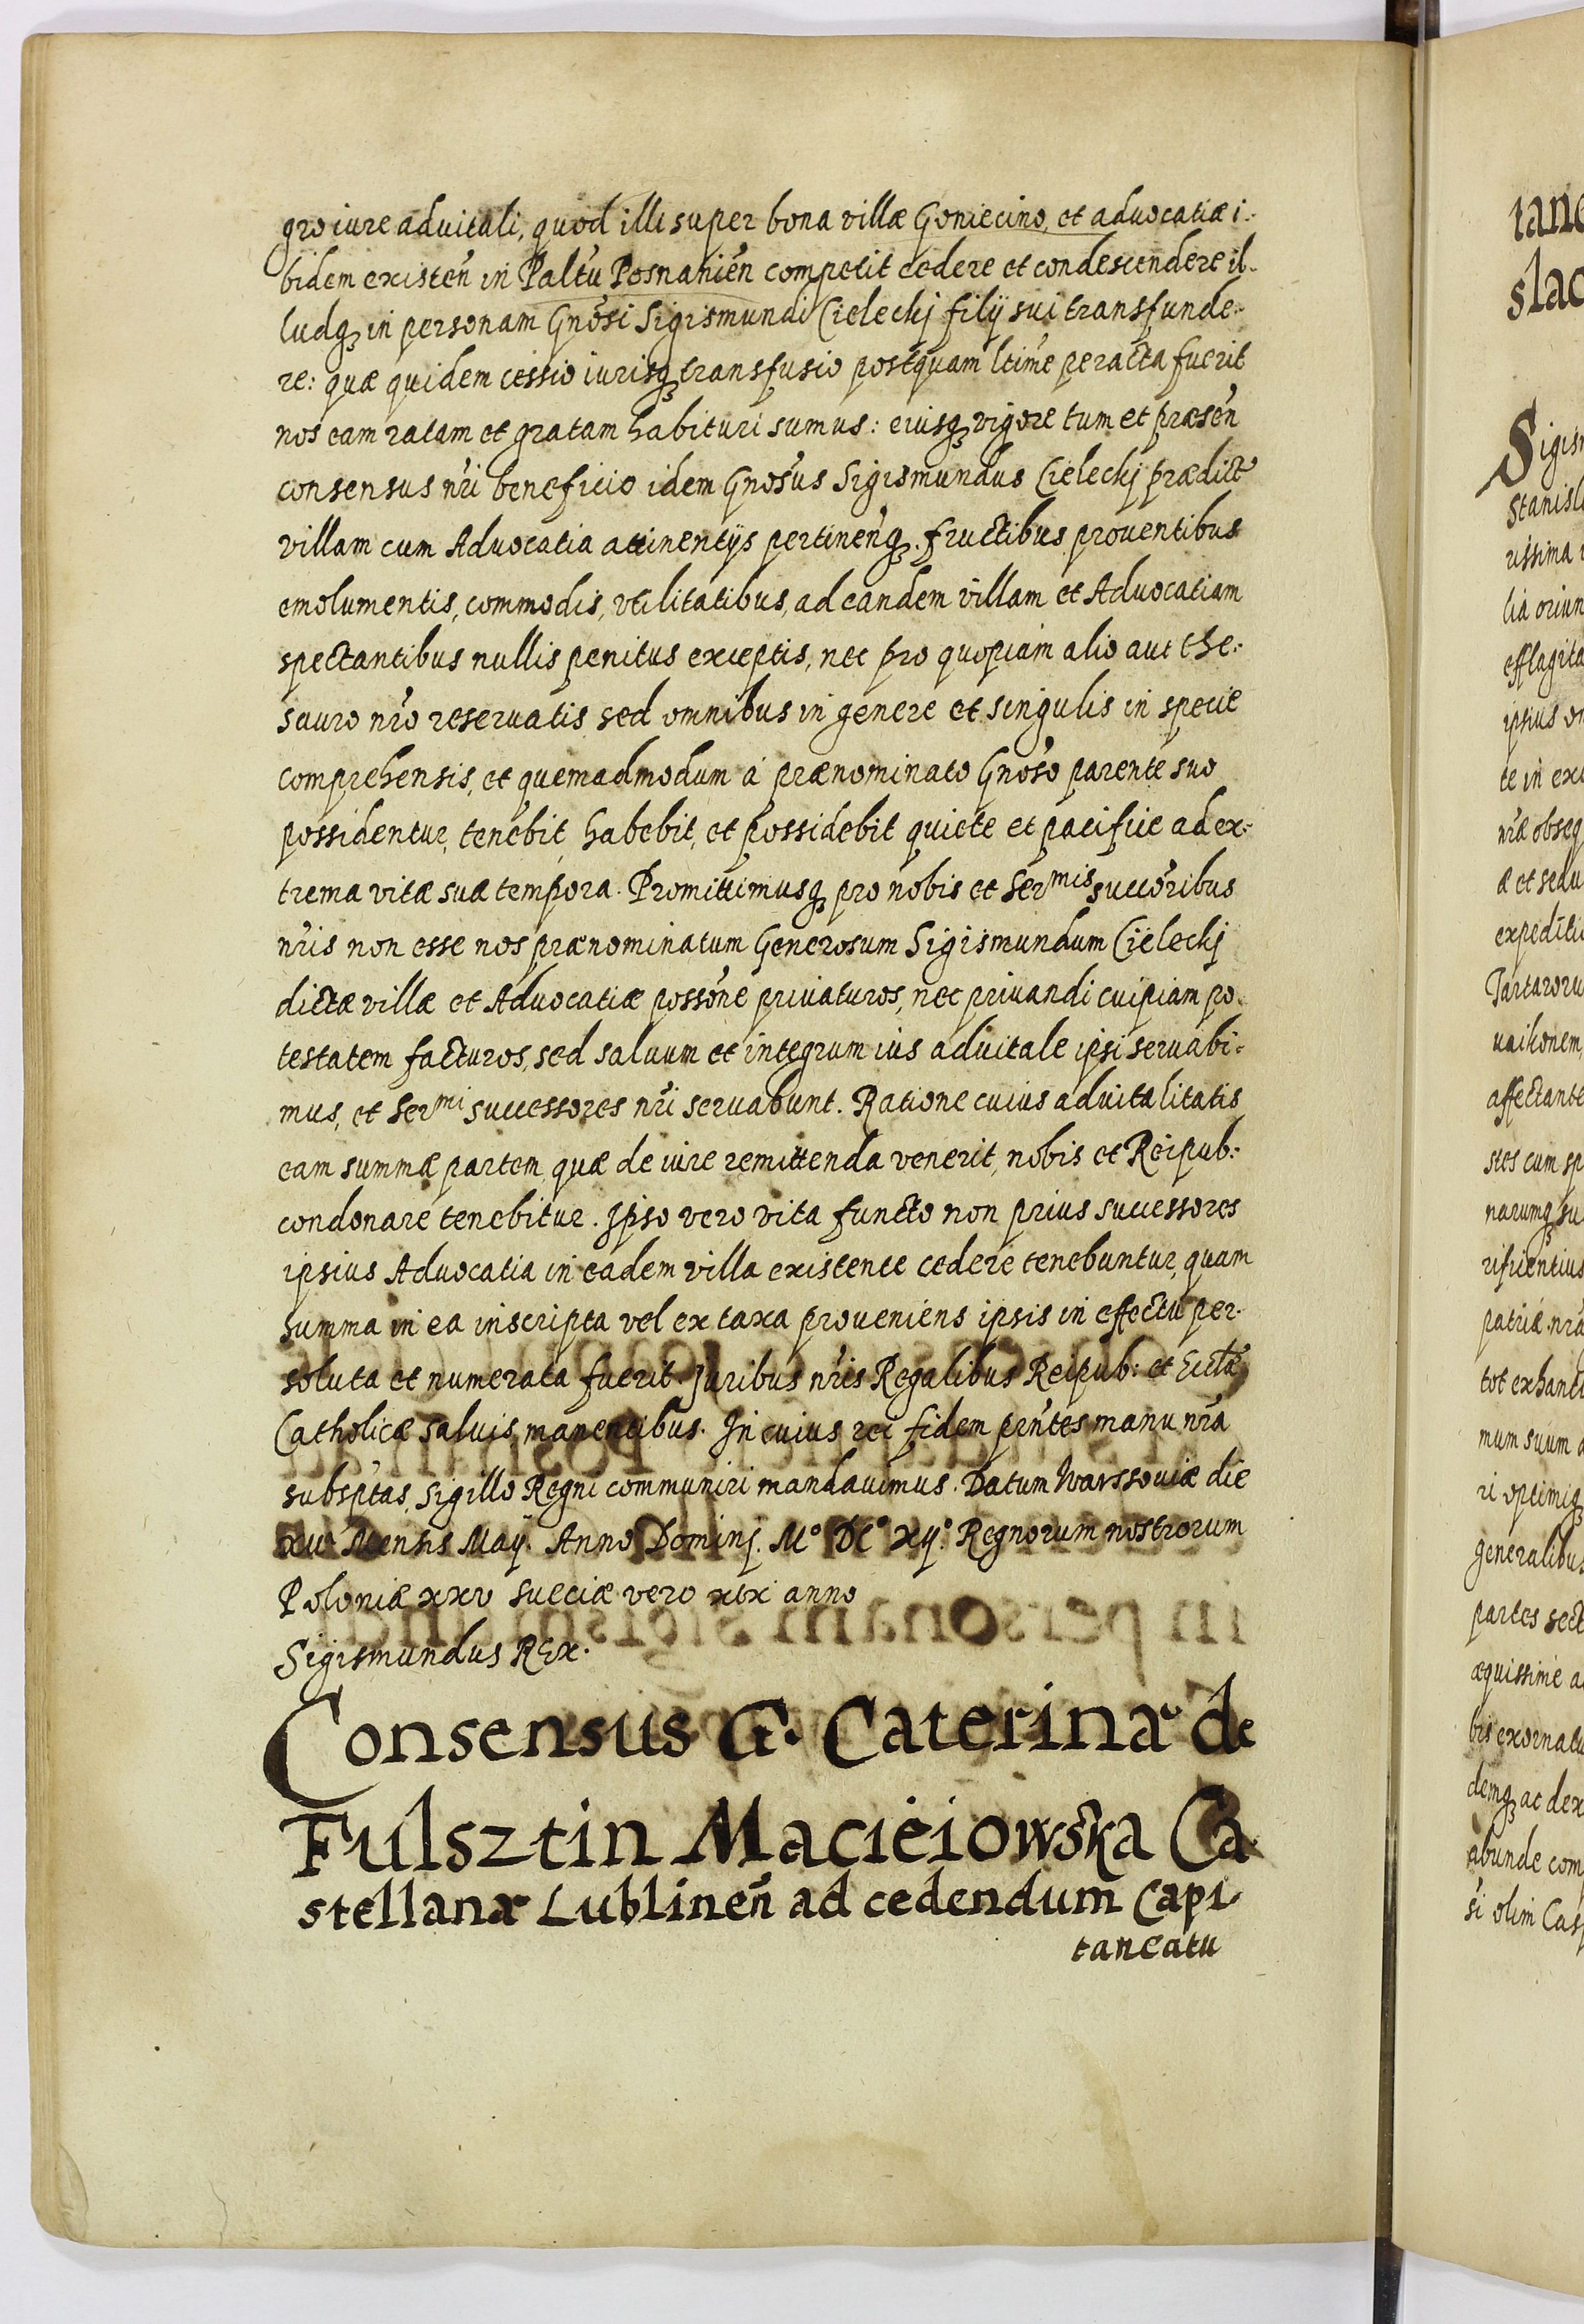 gro iure aduitali, quod illi super bona villæ Goniecino, et aduocatiæ i-
bidem existeñ in Paltu Posnanień competit cedere et condescendere il-
ludq3 in personam Gnosi Sigismundi Cielecky filij sui transfunde-
re: quæ quidem cessio iurisq3 transfusio postquam ltime peracta fuerit
nos eam ratam et gratam habituri sumus: eiusq3 vigore tum et præseñ
consensus nri beneficio idem Gnosus Sigismundus Cielecky prædict
villam cum Aduocatia attinentijs pertinenq3. fructibus prouentibus
emolumentis, commodis, vtilitatibus, ad eandem villam et Aduocatiam
spectantibus nullis penitus exceptis, nec pro quopiam alio aut the-
sauro nro reseruatis sed omnibus in genere et singulis in specie
comprehensis, et quemadmodum á prænominato Gnoso parente suo
possidentur, tenebit, habebit, et possidebit quiete et pacifice ad ex-
trema vitæ suæ tempora. Promittimusq3 pro nobis et Ser^mis succoribus
nris non esse nos prænominatum Generosum Sigismundum Cielecky
dictæ villæ et Aduocatiæ possone priuaturos, nec priuandi cuipiam po-
testatem facturos, sed saluum et integrum ius aduitale ipsi seruabi-
mus, et Ser^mi successores nri seruabunt. Ratione cuius aduitalitatis
eam summæ partem quæ de iure remittenda venerit, nobis et Reipub:
condonare tenebitur. Ipso vero vita functo non prius successores
ipsius Aduocatia in eadem villa existente cedere tenebuntur, quam
summa in ea inscripta vel ex taxa proueniens ipsis in effectu per-
soluta et numerata fuerit. Juribus nris Regalibus Reipub: et Eccłæ
Catholicæ saluis manentibus. In cuius rei fidem prntes manu nra
subsptas, Sigillo Regni communiri mandauimus. Datum Warssouiæ die
xv. Mensis Maij. Anno Dominj. M° DC° xij.° Regnorum nostrorum
Poloniæ xxv sueciæ vero xix anno
Sigismundus REx.
Consensus G. Caterinæ de
Fulsztin Macieiowska Ca-
stellanæ Lublineñ ad cedendum Capi-
taneatu